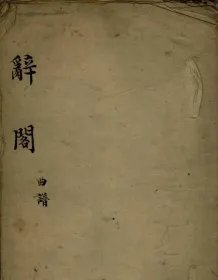 辭閣
曲譜